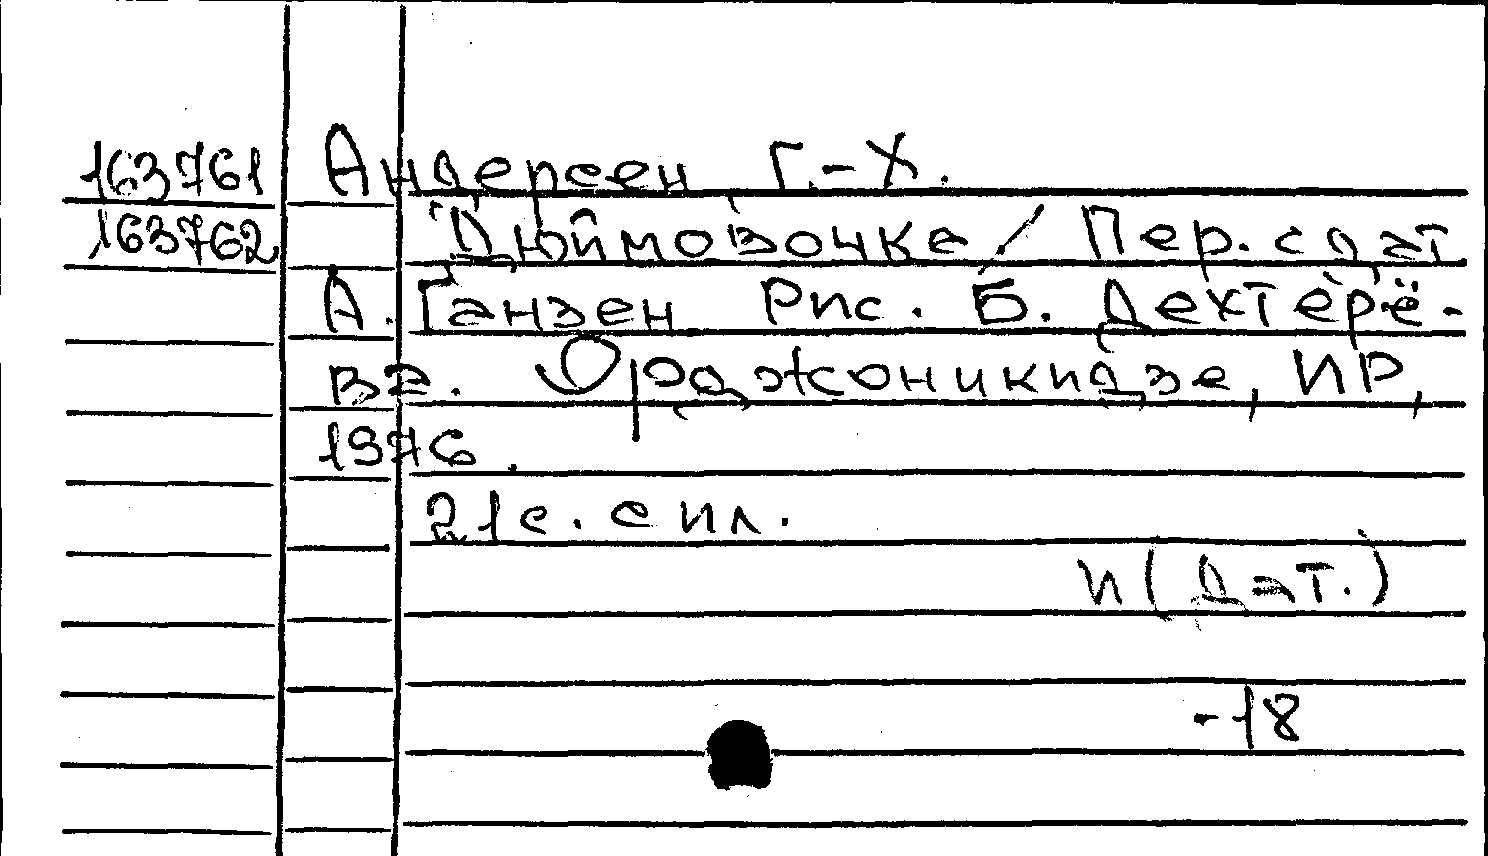 163761 Андерсен Г.-Х.
163762 Дюймовочка / Пер. с дат
А. Ганзен Рис. Б. Дехтерё-
ва. Орджоникидзе, ИР,
1976.
21с. с ил.
И(Дат.)
-18